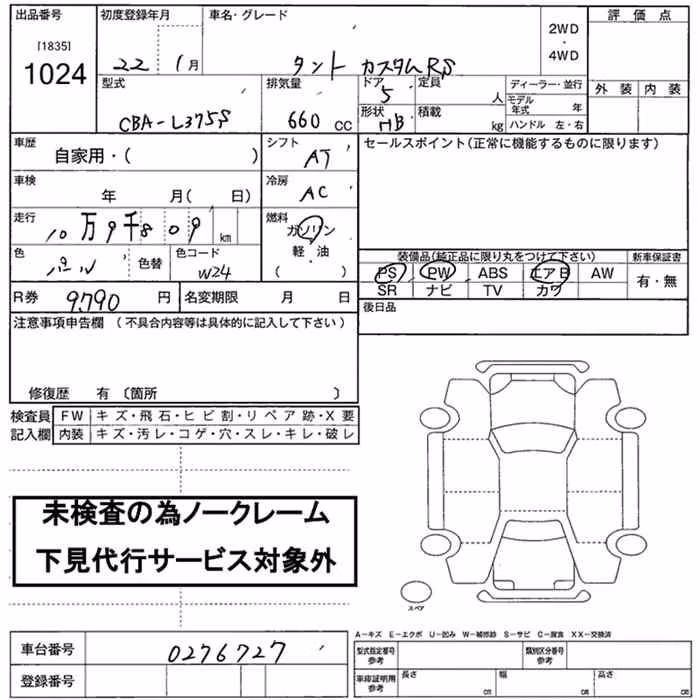 出品番号 初度登録年月 車名・グレード 評価点
[1835]
1024
22 1月 タント カスタムRS 2WD・4WD
型式 排気量 ドア 定員 ディーラー・並行 外装 内装
CBA-L375S 660cc 5 人 モデル年式 年
形状 積載 ハンドル 左・右
HB kg
車歴 シフト セールスポイント(正常に機能するものに限ります)
自家用・( ) AT
車検 冷房
年 月( 日) AC
走行 燃料
10万9千809 km ガソリン
軽・油
( )
色 色替 色コード 装備品(純正品に限り丸をつけて下さい) 新車保証書
パール W24 PS PW ABS エアB AW 有・無
SR ナビ TV カワ
R券 9,790 円 名変期限 月 日 後日品
注意事項申告欄(不具合内容等は具体的に記入して下さい)
修復歴 有〔箇所 〕
検査員 FW キズ・飛石・ヒビ割・リペア跡・X要
記入欄 内装 キズ・汚レ・コゲ・穴・スレ・キレ・破レ
未検査の為ノークレーム
下見代行サービス対象外
スペア
A-キズ E-エクボ U-凹み W-補修跡 S-サビ C-腐食 XX-交換済
車台番号 0276727 型式指定番号 参考 類別区分番号 参考
登録番号 車庫証明用 参考 長さ cm 幅 cm 高さ cm